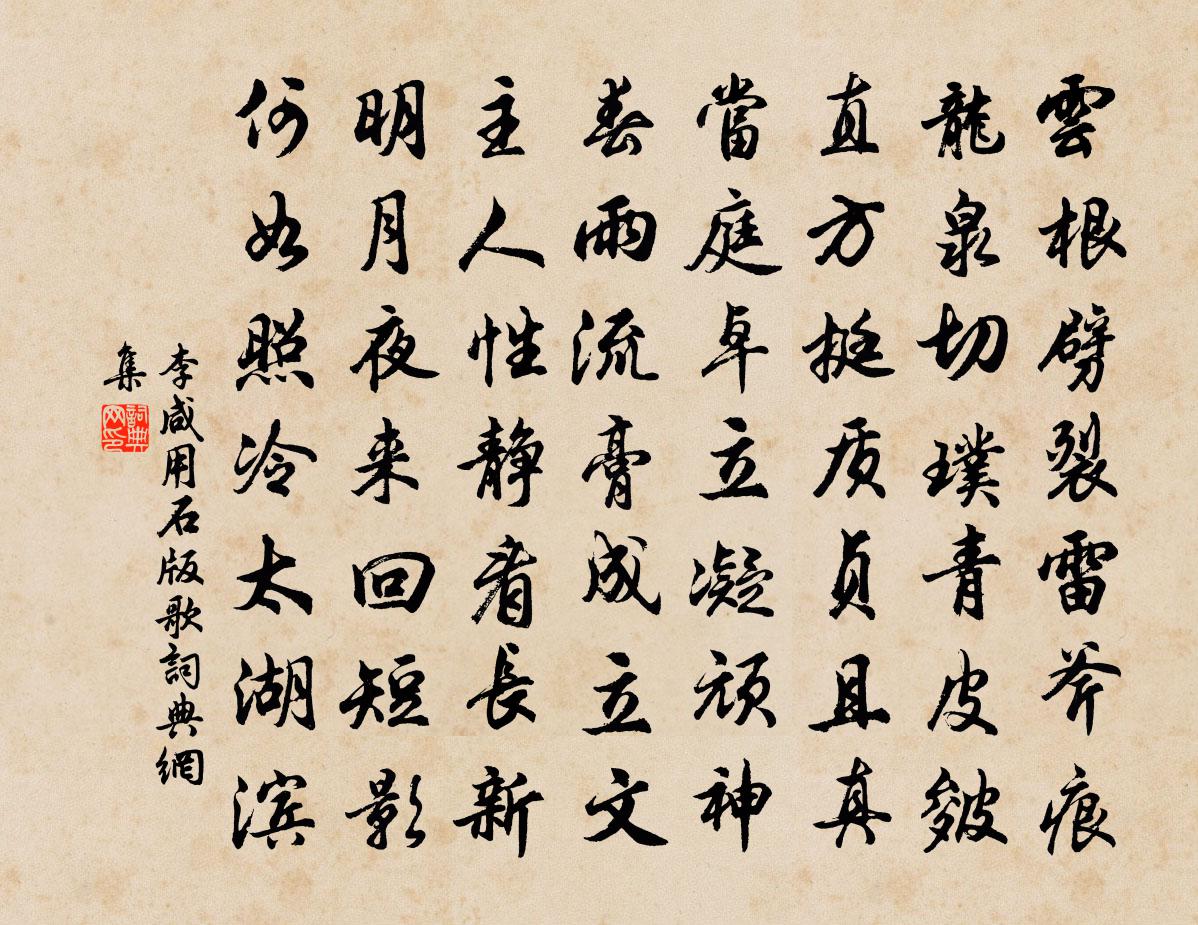 雲根劈裂雷斧痕
龍泉切璞青皮皴
直方挺质貞且真
當庭卓立凝顽神
春雨流膏成立文
主人性静看長新
明月夜来回短影
何如照冷太湖滨
李咸用石版歌詞典網
集
詞典
网印